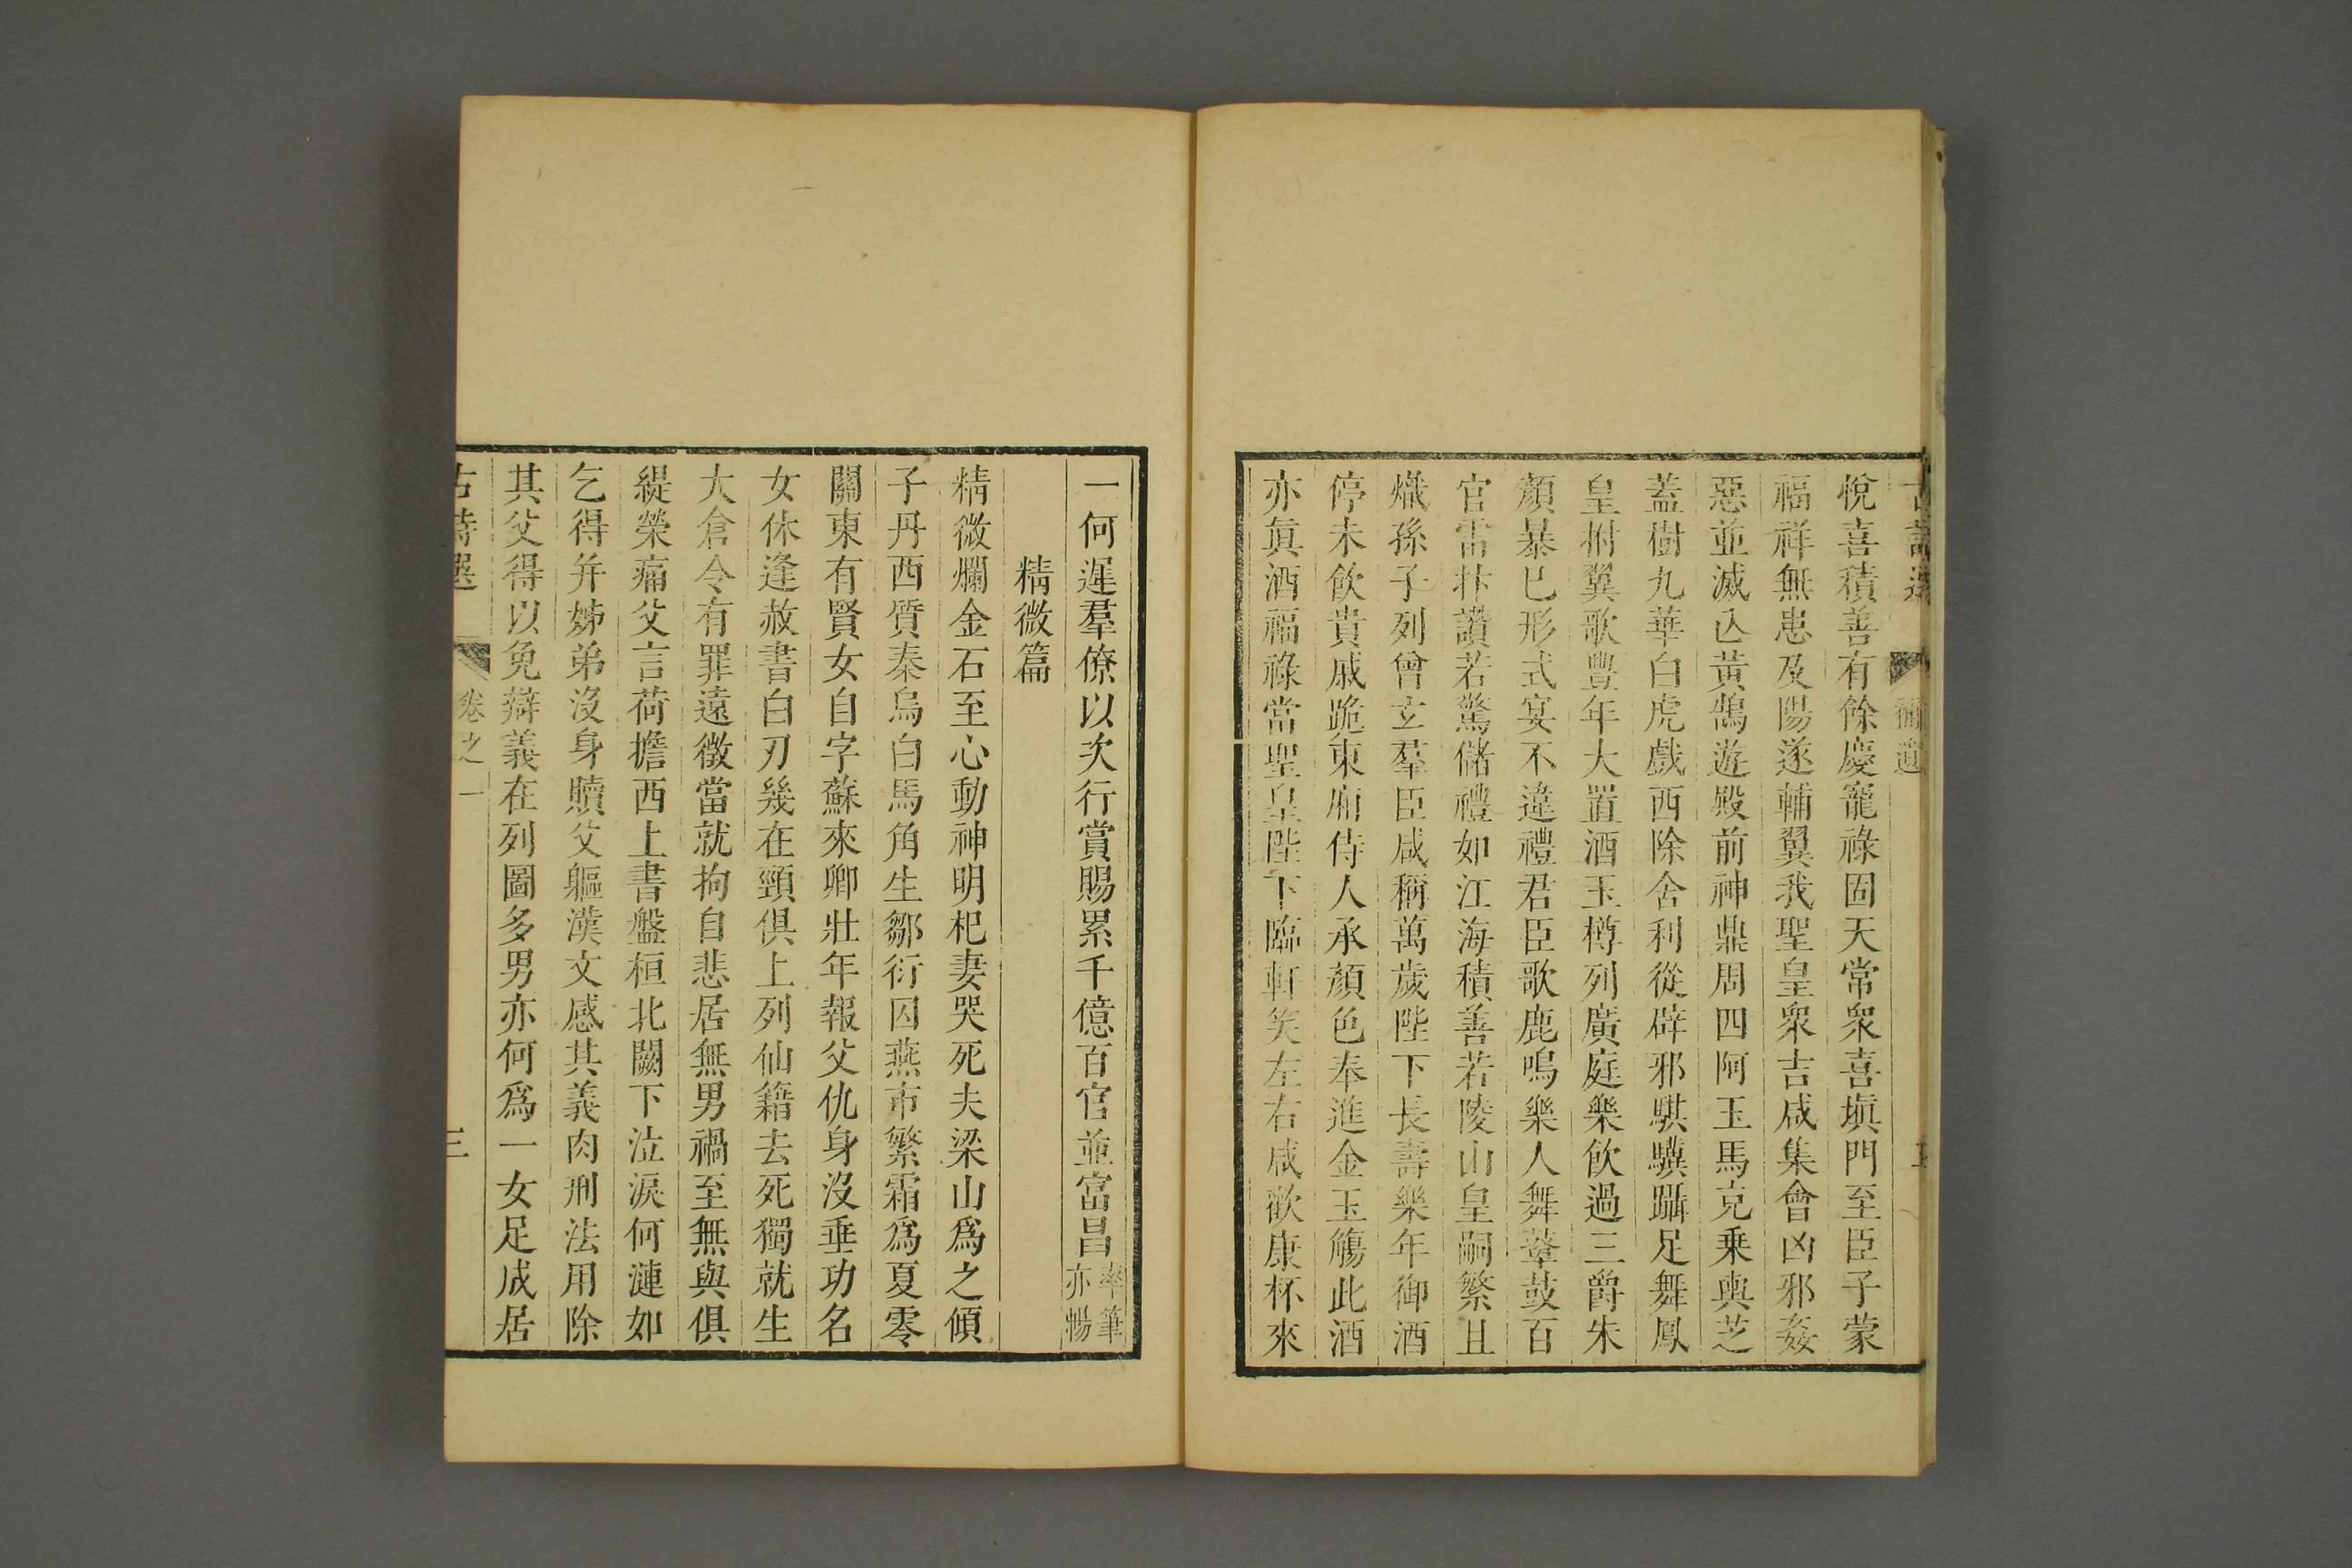 悅喜積善有餘慶寵祿固天常衆喜塡門至臣子蒙
福祥無患及陽遂輔翼我聖皇衆吉咸集會凶邪姦
惡並滅亾黃鵠遊殿前神鼎周四阿玉馬克乘輿芝
蓋樹九華白虎戲西除舍利從辟邪騏驥躡足舞鳳
皇拊翼歌豐年大置酒玉樽列廣庭樂飲過三爵朱
顏暴已形式宴不違禮君臣歌鹿鳴樂人舞鼙鼓百
官雷抃讚若驚儲禮如江海積善若陵山皇嗣繁且
熾孫子列曾玄羣臣咸稱萬歲陛下長壽樂年御酒
停未飲貴戚跪東廂侍人承顏色奉進金玉觴此酒
亦眞酒福祿當聖皇陛下臨軒笑左右咸歡康杯來
一何遲羣僚以次行賞賜累千億百官並富昌
率筆
亦暢
精微篇
精微爛金石至心動神明杞妻哭死夫梁山爲之傾
子丹西質秦烏白馬角生鄒衍囚燕市繁霜爲夏零
關東有賢女自字蘇來卿壯年報父仇身沒垂功名
女休逢赦書白刃幾在頸俱上列仙籍去死獨就生
大倉令有罪遠徵當就拘自悲居無男禍至無與俱
緹縈痛父言荷擔西上書盤桓北闕下泣淚何漣如
乞得幷姊弟沒身贖父軀漢文感其義肉刑法用除
其父得以免辯義在列圖多男亦何爲一女足成居
古詩選
卷之一
三